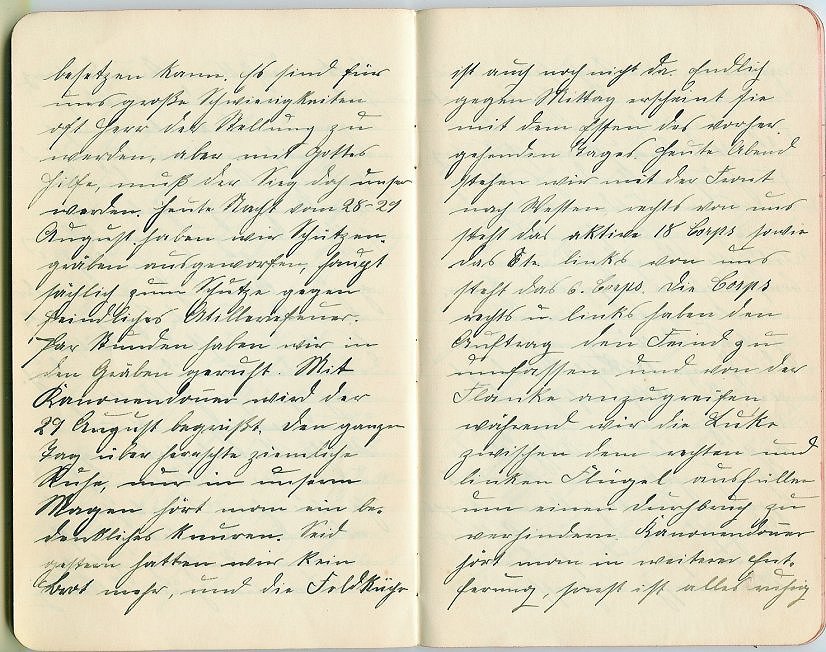 besetzen kann. Es sind für
uns große Schwierigkeiten
oft Herr der Stellung zu
werden, aber mit Gottes
Hilfe, muß der Sieg doch unser
werden. Heute Nacht vom 28-29
August haben wir Schützen-
gräben ausgeworfen, haupt
sächlich zum Schutze gegen
feindliches Atilleriefeuer.
Par Stunden haben wir in
den Gräben geruht. Mit
Kanonendoner wird der
29 August begrüßt. Den ganzen
Tag über herrschte ziemliche
Ruhe, nur in unserm
Magen hört man ein be-
denkliches Knuren. Seid
gestern hatten wir kein
Brot mehr, und die Feldküche
ist auch noch nicht da. Endlich
gegen Mittag erscheint sie
mit dem Essen des vorher
gehenden Tages. Heute Abend
stehen wir mit der Front
nach Westen rechts von uns
steht das aktive 18 Corps sowie
das 8te links von uns
steht das 6. Corps. Die Corps
rechts u. links haben den
Auftrag den Feind zu
umfassen und von der
Flanke anzugreifen
während wir die Lüke
zwischen dem rechten und
linken Flügel ausfüllen
um einen Durchbruch zu
verhindern. Kanonendoner
hört man in weiterer Ent-
ferung, sonst ist alles ruhig